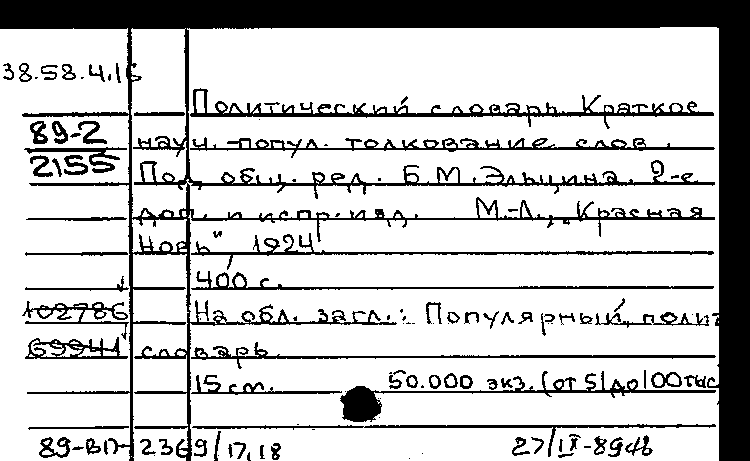 38.58.4.16
Политический словарь. Краткое
89-2 науч.-попул. толкование слов.
2155 Под общ. ред. Б.М.Эльцина. 2-е
доп. и испр. изд. М.-Л., „Красная
Новь", 1924.
400 с.
102786 На обл. загл.: Популярный полит
69941 словарь.
15 см. 50.000 экз. (от 51 до 100 тыс
89-ВП-2369/17,18 27/IX-89